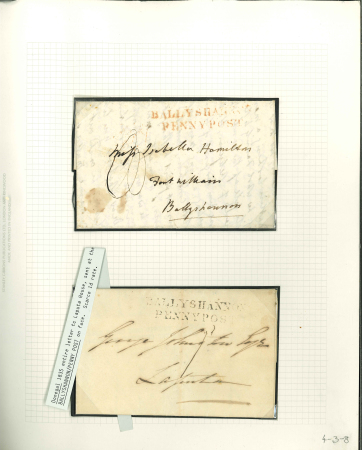 BALLYSHANN
PENNY POST
Miss Isabella Hamilton
Fort William
Ballyshannon
BALLYSHANN
PENNY POS
George Johnston Esqr
Laputa
Donegal 1835 entire letter to Laputa House, sent at the
BALLYSHANNON/PENNY POST on face. Scarce 1d rate.
4-3-8